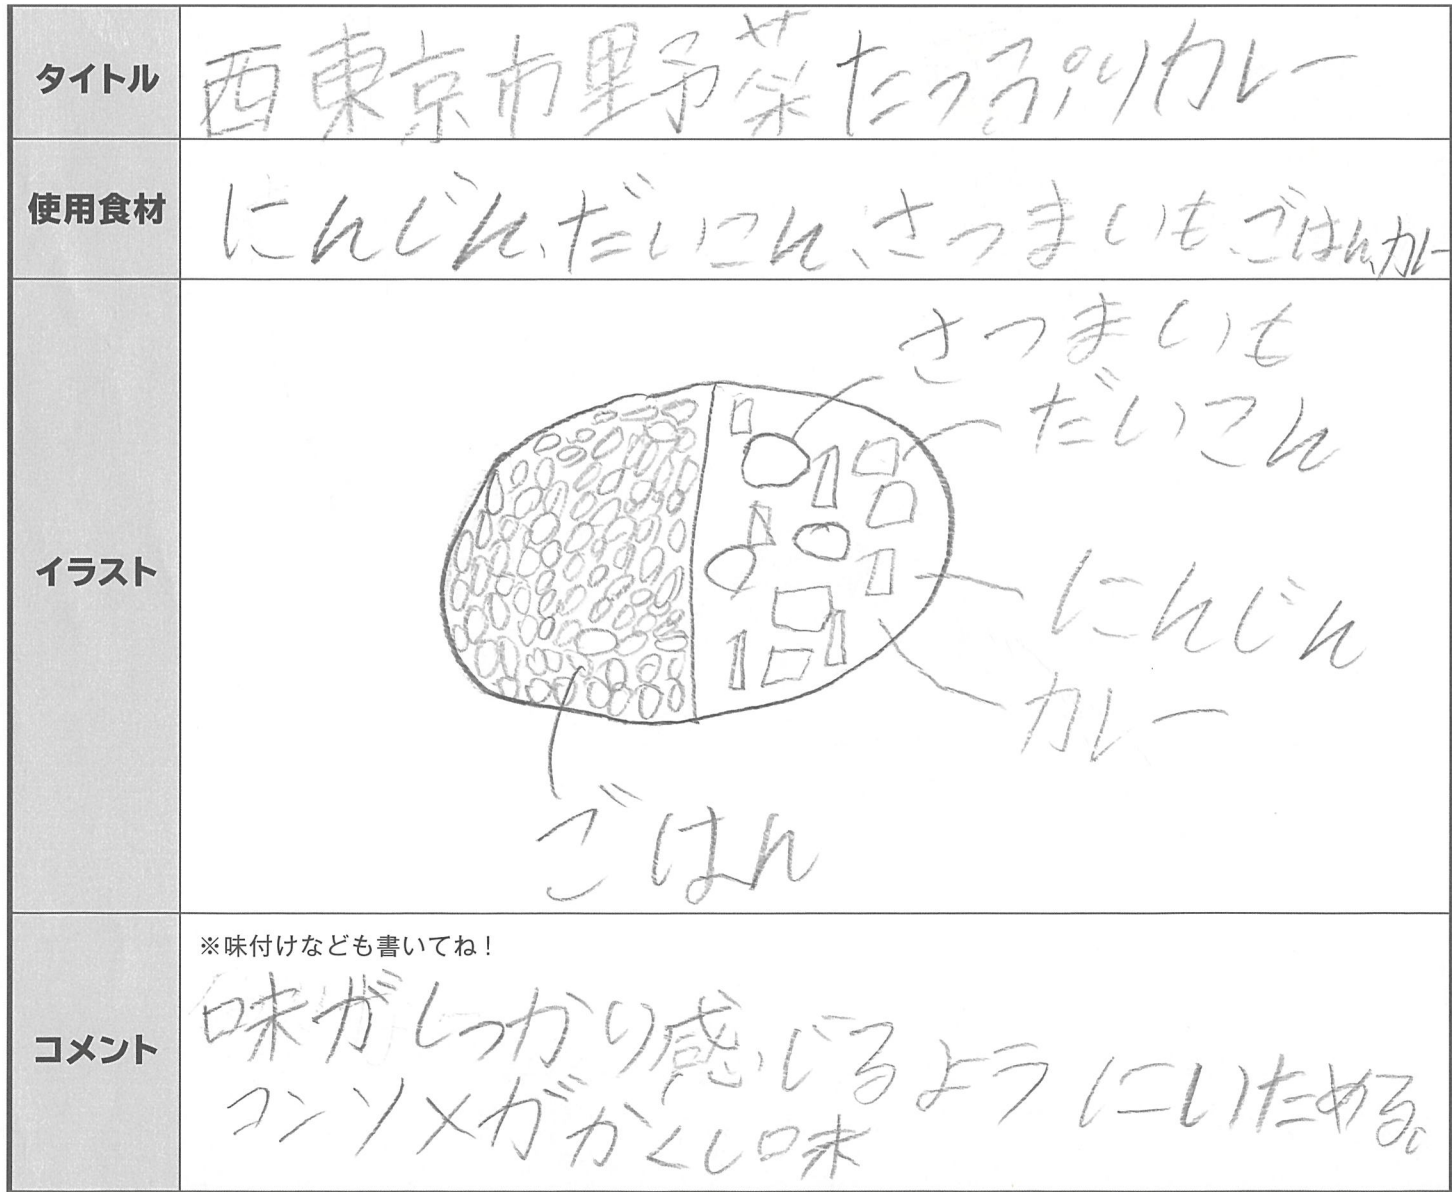 タイトル
西東京市野菜たっぷりカレー
使用食材
にんじん、だいこん、さつまいも、ごはん、カレー
イラスト
さつまいも
だいこん
にんじん
カレー
ごはん
コメント
※味付けなども書いてね!
味がしっかり感じるようにいためる。
コンソメがかくし味